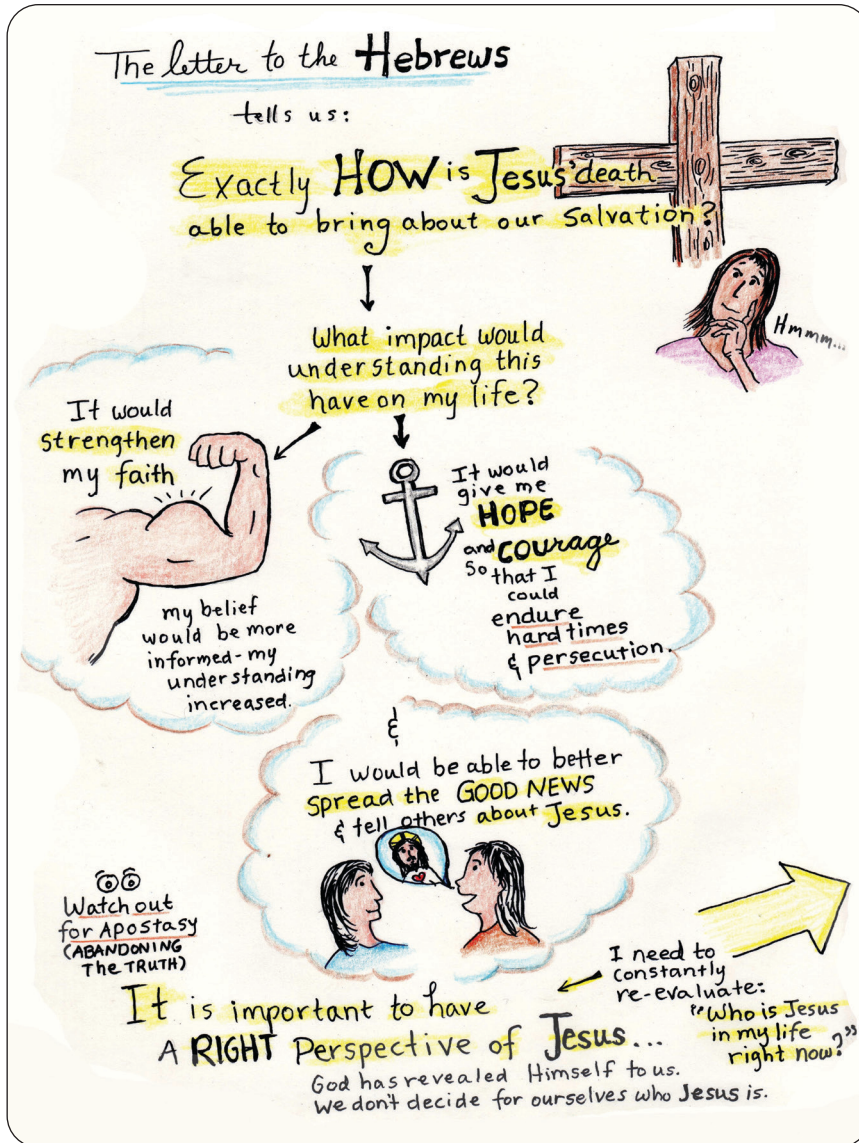 The letter to the Hebrews
tells us:
Exactly HOW is Jesus' death
able to bring about our salvation?
Hmmm...
What impact would
understanding this
have on my life?
It would
strengthen
my faith
my belief
would be more
informed - my
understanding
increased.
It would
give me
HOPE
and COURAGE
so that I
could
endure
hard times
& persecution.
&
I would be able to better
spread the GOOD NEWS
& tell others about Jesus.
Watch out
for Apostasy
(ABANDONING
The TRUTH)
I need to
constantly
re-evaluate:
"Who is Jesus
in my life
right now?"
It is important to have
A RIGHT Perspective of Jesus...
God has revealed Himself to us.
We don't decide for ourselves who Jesus is.